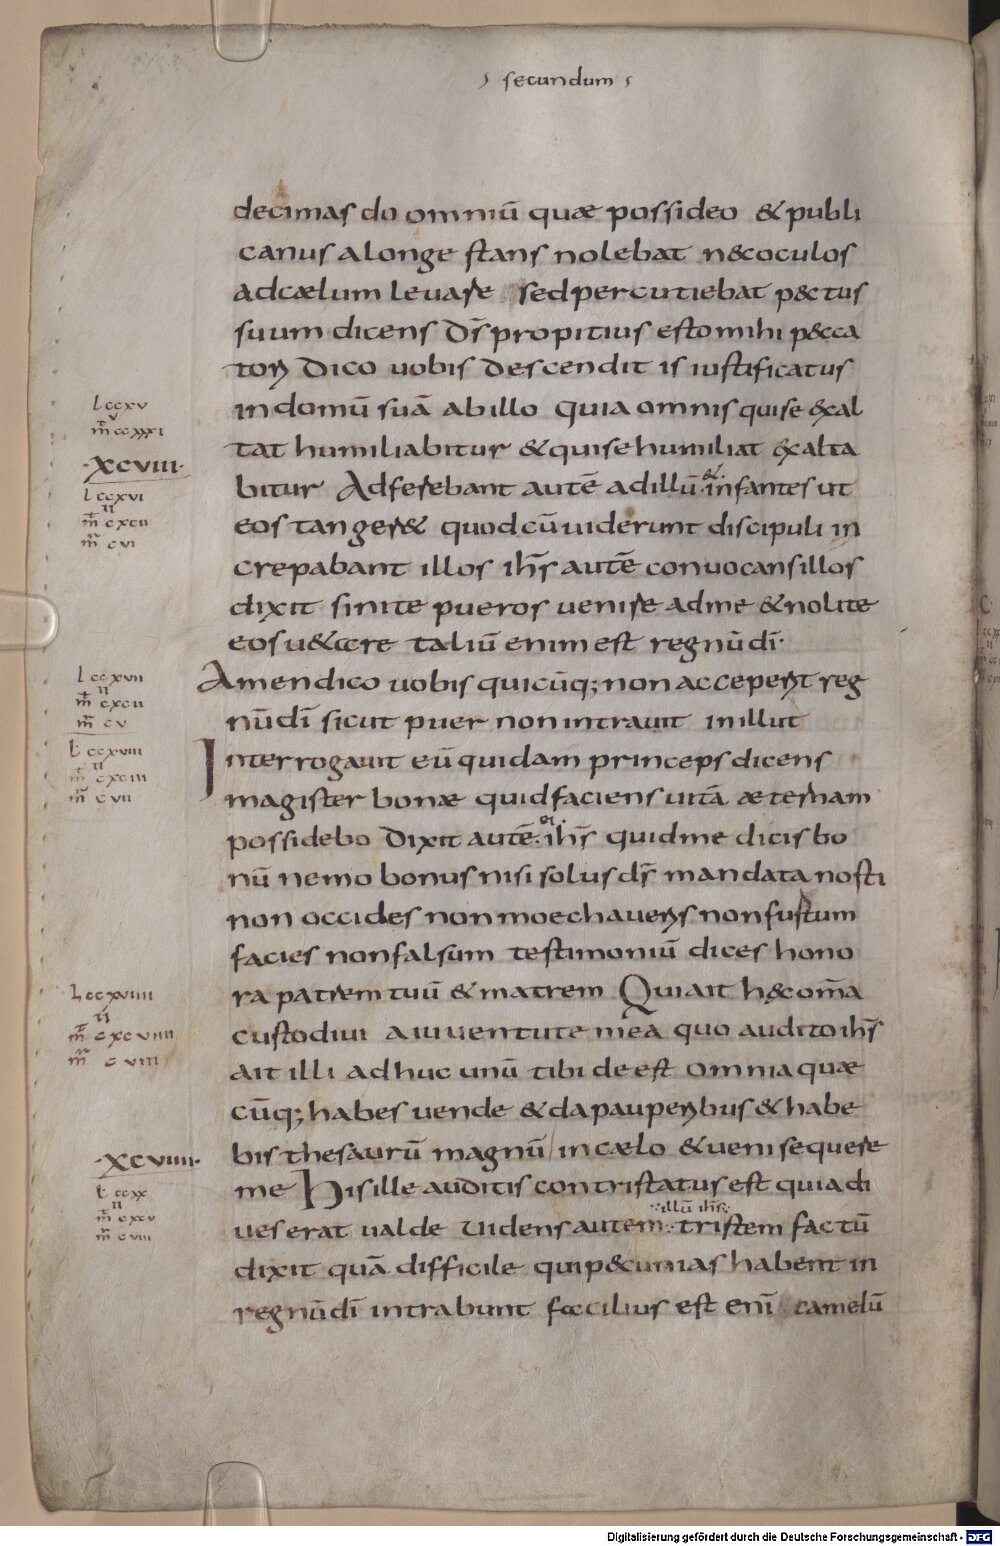 secundum
decimas do omniū quæ possideo & publi
canus alonge stans nolebat n&oculos
adcælum leuare sed percutiebat p&tus
suum dicens Ds̄ propitius esto mihi p&ca
tori Dico uobis Descendit is iustificatus
l ccxv
v
m̄ ccxxxi
in domū suā ab illo quia omnis quise exal
tat humiliabitur & quise humiliat exalta
·XCVIII·
bitur Adferebant autē adillū & infantes ut
l ccxvi
ii
m̄ cxcii
m̄ cvi
eos tanger& quod cū uiderunt discipuli in
crepabant illos ihs̄ autē conuocans illos
dixit sinite pueros uenire adme & nolite
eos u&are taliū enim est regnū dī·
l ccxvii
ii
m̄ cxcii
m̄ cv
Amen dico uobis quicūq; non acceperit reg
nū dī sicut puer non intrauit in illut
l ccxviii
ii
m̄ cxciii
m̄ cvii
Interrogauit eū quidam princeps dicens
magister bonæ quid faciens uitā æternam
possidebo Dixit autē ei ihs̄ quid me dicis bo
nū nemo bonus nisi solus ds̄ mandata nosti
non occides non moechaueris non furtum
facies non falsum testimoniū dices hono
l ccxviiii
ii
m̄ cxcviiii
m̄ cviii
ra patrem tuū & matrem Qui ait hęc om̄a
custodiui a iuuentute mea quo audito ihs̄
ait illi adhuc unū tibi deest omnia quæ
cūq; habes uende & da pauperibus & habe
·XCVIIII·
bis thesaurū magnū in cælo & ueni sequere
l ccxx
ii
m̄ cxcv
m̄ cviii
me His ille auditis contristatus est quia di
ues erat ualde Uidens autem illū ihs̄ tristem factū
dixit quā difficile qui p&unias habent in
regnū dī intrabunt facilius est enī camelū
Digitalisierung gefördert durch die Deutsche Forschungsgemeinschaft - DFG